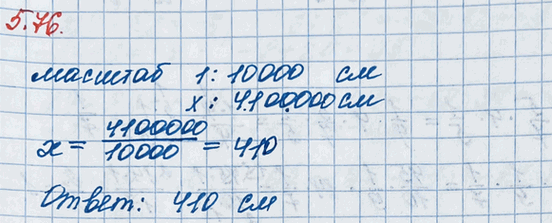 5.76.
масштаб 1: 10000 см
x: 4100000 см
x = 4100000/10000 = 410
Ответ: 410 см